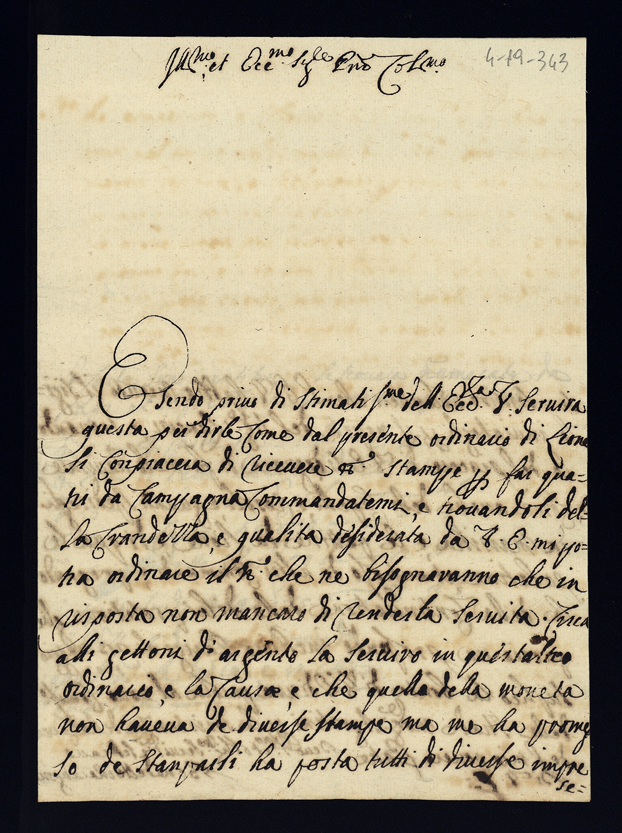 Ill.mo et Ecc.mo Sig.re P̄rōn Col.mo
4-19-343
Esendo privo di Stimatis.me dell Ecc.za V. Servira
questa per dirle Come dal presente ordinario di Lione
si Conpiacera di ricevere n.o Stampe p far qua=
tri da Campagna Commandatemi, e trovandoli del=
la Grandezza, e qualita desiderata da V. E. mi po=
tra ordinare il n.o che ne bisognavanno che in
risposta non mancaro di renderla Servita. Circa
alli gettoni di argento la Serviro in quist altro
ordinario, e la Causa e che quello dela moneta
non haveva de diverse stampe ma me ha prome
so de Stanparli ha posta tutti di diverse impre
se=